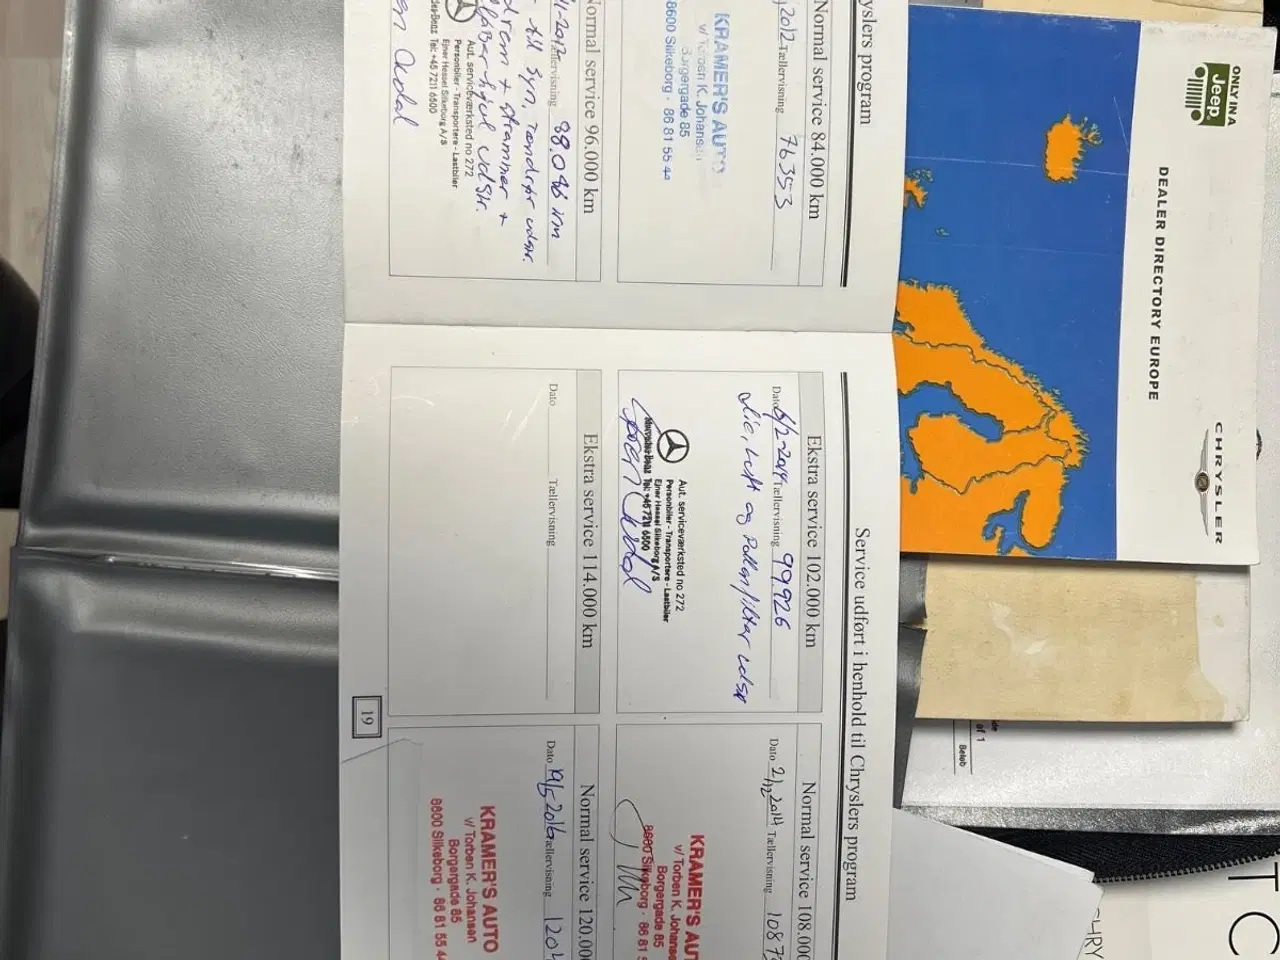 yslers program
Normal service 84.000 km
2012 Tællervisning 76353
KRAMER'S AUTO
v/ Torben K. Johansen
Borgergade 85
8600 Silkeborg · 86 81 55 44
Normal service 96.000 km
Tællervisning 88.046 km
til syn,
Aut. serviceværksted no 272
Personbiler - Transportere - Lastbiler
Ejner Hessel Silkeborg A/S
Tel: +45 7211 6500
Service udført i henhold til Chryslers program
Ekstra service 102.000 km
Dato 6/2-2014 Tællervisning 99926
olie, luft og Pollenfilter udsk
Aut. serviceværksted no 272
Personbiler - Transportere - Lastbiler
Ejner Hessel Silkeborg A/S
Mercedes-Benz Tel: +45 7211 6500
Ekstra service 114.000 km
Dato Tællervisning
19
Normal service 108.000
Dato 2/12 2014 Tællervisning 1087
KRAMER'S AUT
v/ Torben K. Johanse
Borgergade 85
8600 Silkeborg · 86 81 5
Normal service 120.00
Dato 19/5-2016 Tællervisning 120
KRAMER'S AUTO
v/ Torben K. Johansen
Borgergade 85
8600 Silkeborg · 86 81 55 44
ONLY IN A
Jeep
DEALER DIRECTORY EUROPE
CHRYSLER
af 1
Beløb
T
C
HRY